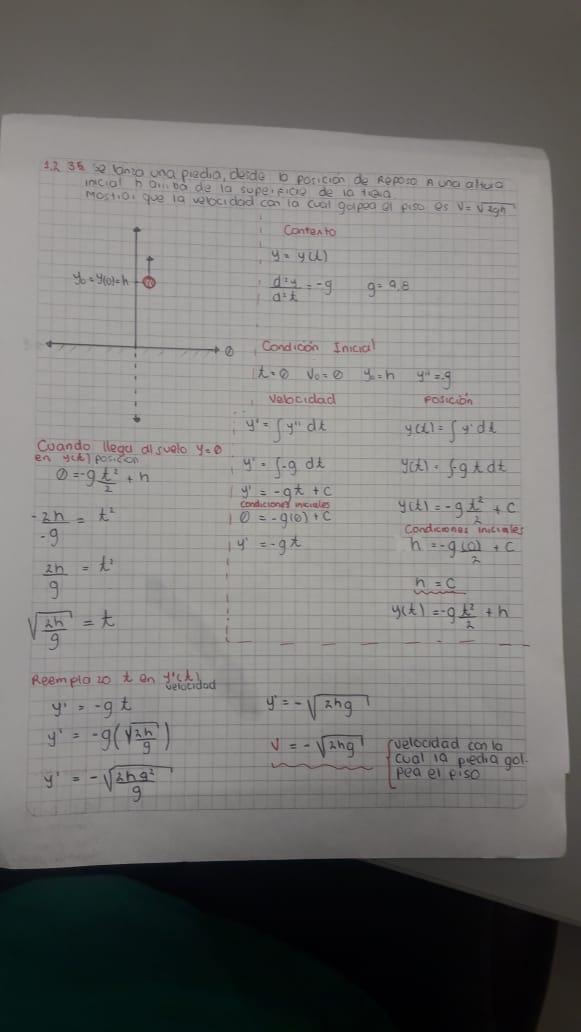 1.2 35 Se lanza una piedra, desde la posición de Reposo A una altura
inicial h arriba de la superficie de la tierra
Mostrar que la velocidad con la cual golpea el piso es V = √2gh
Contexto
y = y(t)
d²y/d²t = -g g = 9.8
y₀ = y(0) = h
0
Condición Inicial
t = 0 V₀ = 0 y₀ = h y'' = -g
Velocidad
y' = ∫ y'' dt
y' = ∫ -g dt
y' = -gt + C
condiciones iniciales
0 = -g(0) + C
y' = -gt
Posición
y(t) = ∫ y' dt
y(t) = ∫ -g t dt
y(t) = -g t²/2 + C
Condiciones iniciales
h = -g (0)/2 + C
h = C
y(t) = -g t²/2 + h
Cuando llega al suelo y = 0
en y(t) posición
0 = -g t²/2 + h
-2h/-g = t²
2h/g = t²
√2h/g = t
Reemplazo t en y'(t)
velocidad
y' = -g t
y' = -g(√2h/g)
y' = -√2hg²/g
y' = -√2hg
V = -√2hg
velocidad con la
cual la piedra gol-
pea el piso